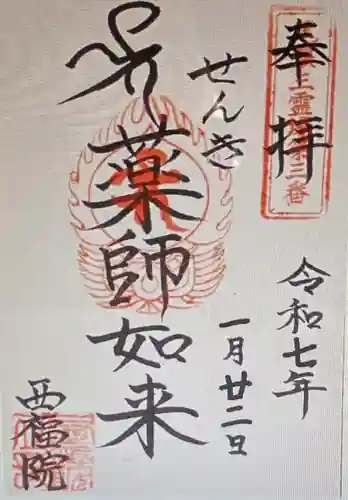 奉拝
上霊場第三番
令和七年
せんき
一月廿二日
薬師如来
西福院